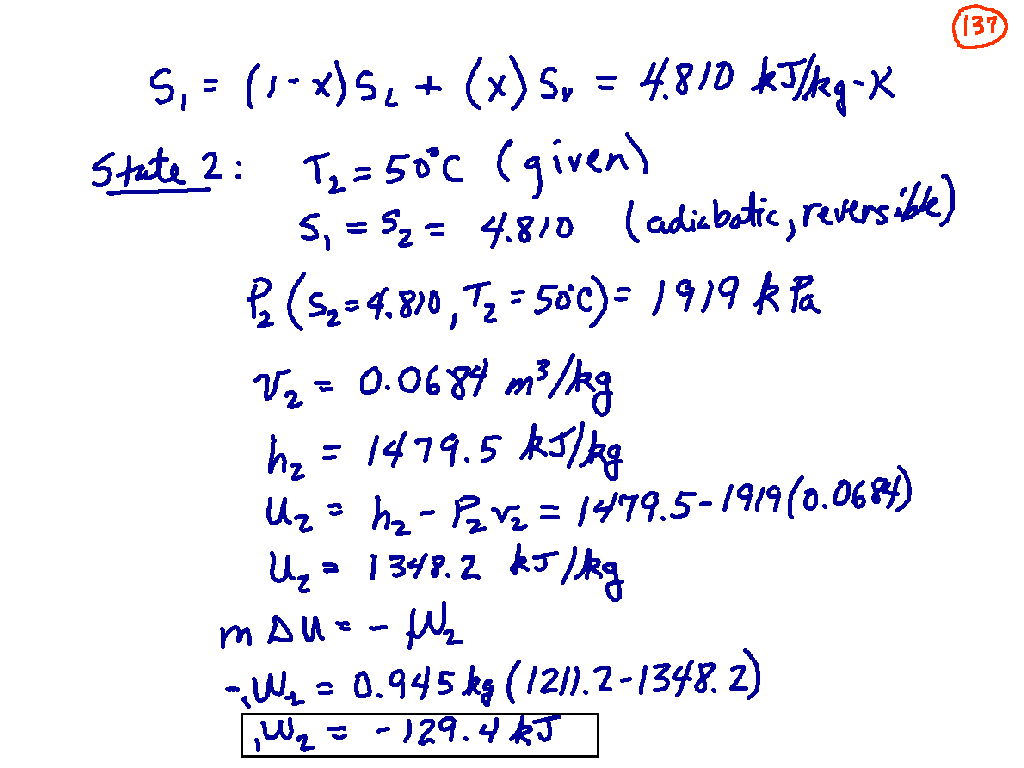 137
S₁ = (1-x) S_L + (x) S_v = 4.810 kJ/kg-K
State 2: T₂ = 50°C (given)
S₁ = S₂ = 4.810 (adiabatic, reversible)
P₂ (S₂=4.810, T₂ = 50°C) = 1919 kPa
v₂ = 0.0684 m³/kg
h₂ = 1479.5 kJ/kg
u₂ = h₂ - P₂v₂ = 1479.5-1919(0.0684)
u₂ = 1348.2 kJ/kg
m Δu = - ₁W₂
-₁W₂ = 0.945 kg (1211.2-1348.2)
₁W₂ = -129.4 kJ